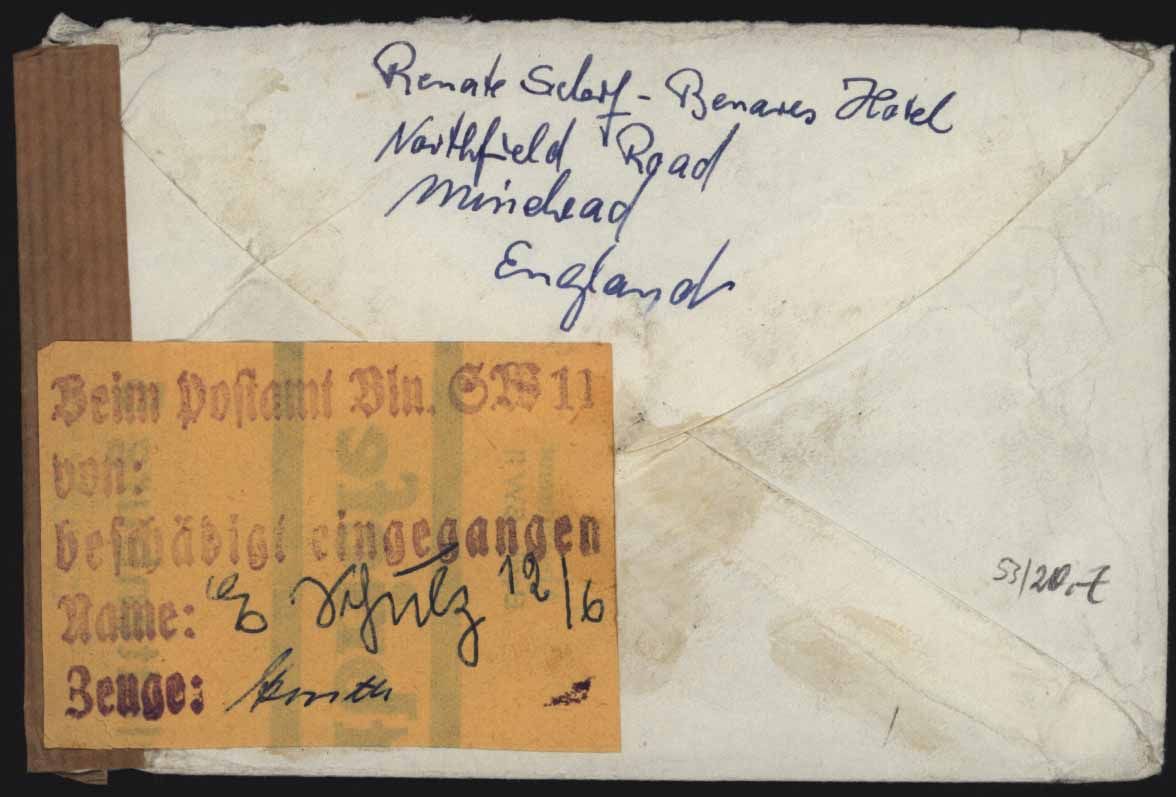 Renate Scharf - Benares Hotel
Northfield Road
Minehead
England
Beim Postamt Bln. SW 11
von:
beschädigt eingegangen
Name: E Schulz 12/6
Zeuge:
53/20,-